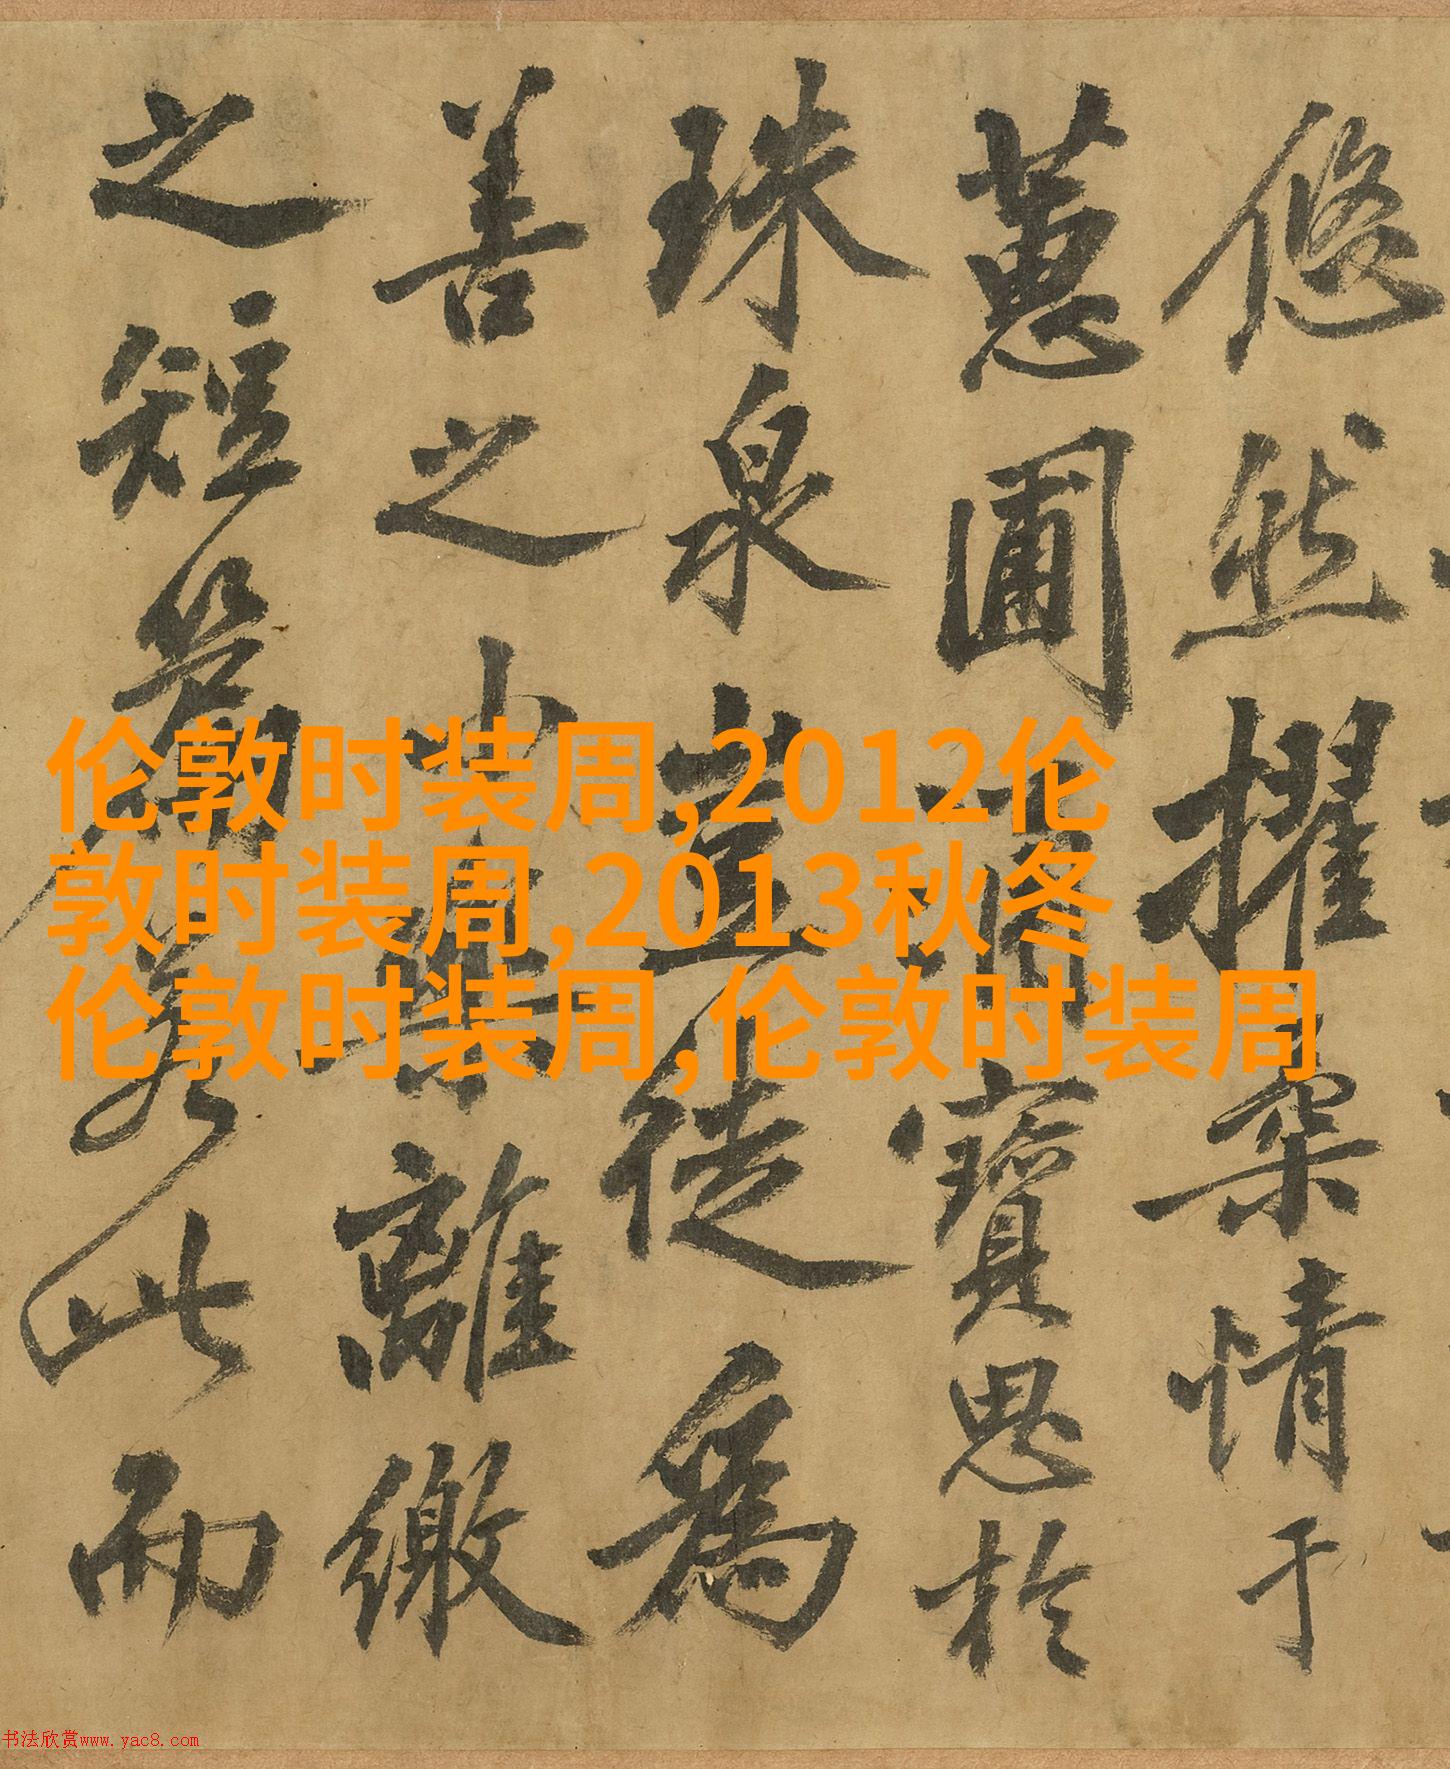 悠然擢情于
蕙圃寶思於
珠泉豈徒為
善之樂離繳
之短篇若此而
伦敦时装周,2012伦
敦时装周,2013秋冬
伦敦时装周,伦敦时装周
书法欣赏www.yac8.com